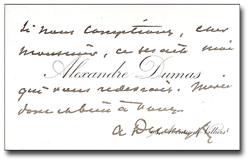 Si nous comptions, cher
monsieur, ce serait moi
Alexandre Dumas
qui vous redevrais. Merci
donc et bien à vous
A Dumas
Villiers